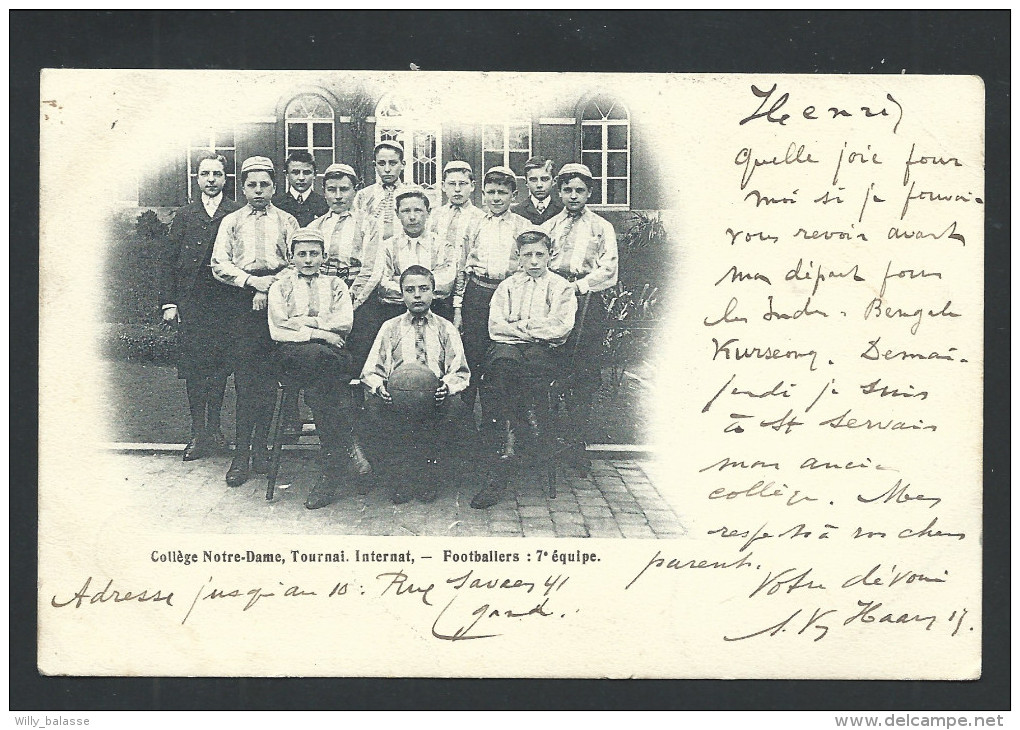 Henri,
Quelle joie pour
moi si je pouvai-
vous revoir avant
mon départ pour
les Indes - Bengale
Kurseong. Demain
jeudi je suis
à St Servais
mon ancien
collège. Mes
respects à vos chers
parents.
Votre dévoué
Collège Notre-Dame, Tournai. Internat, — Footballers : 7e équipe.
Adresse jusqu'au 10 : Rue Savaen 41
Gand.
Willy_balasse
delcampe.net